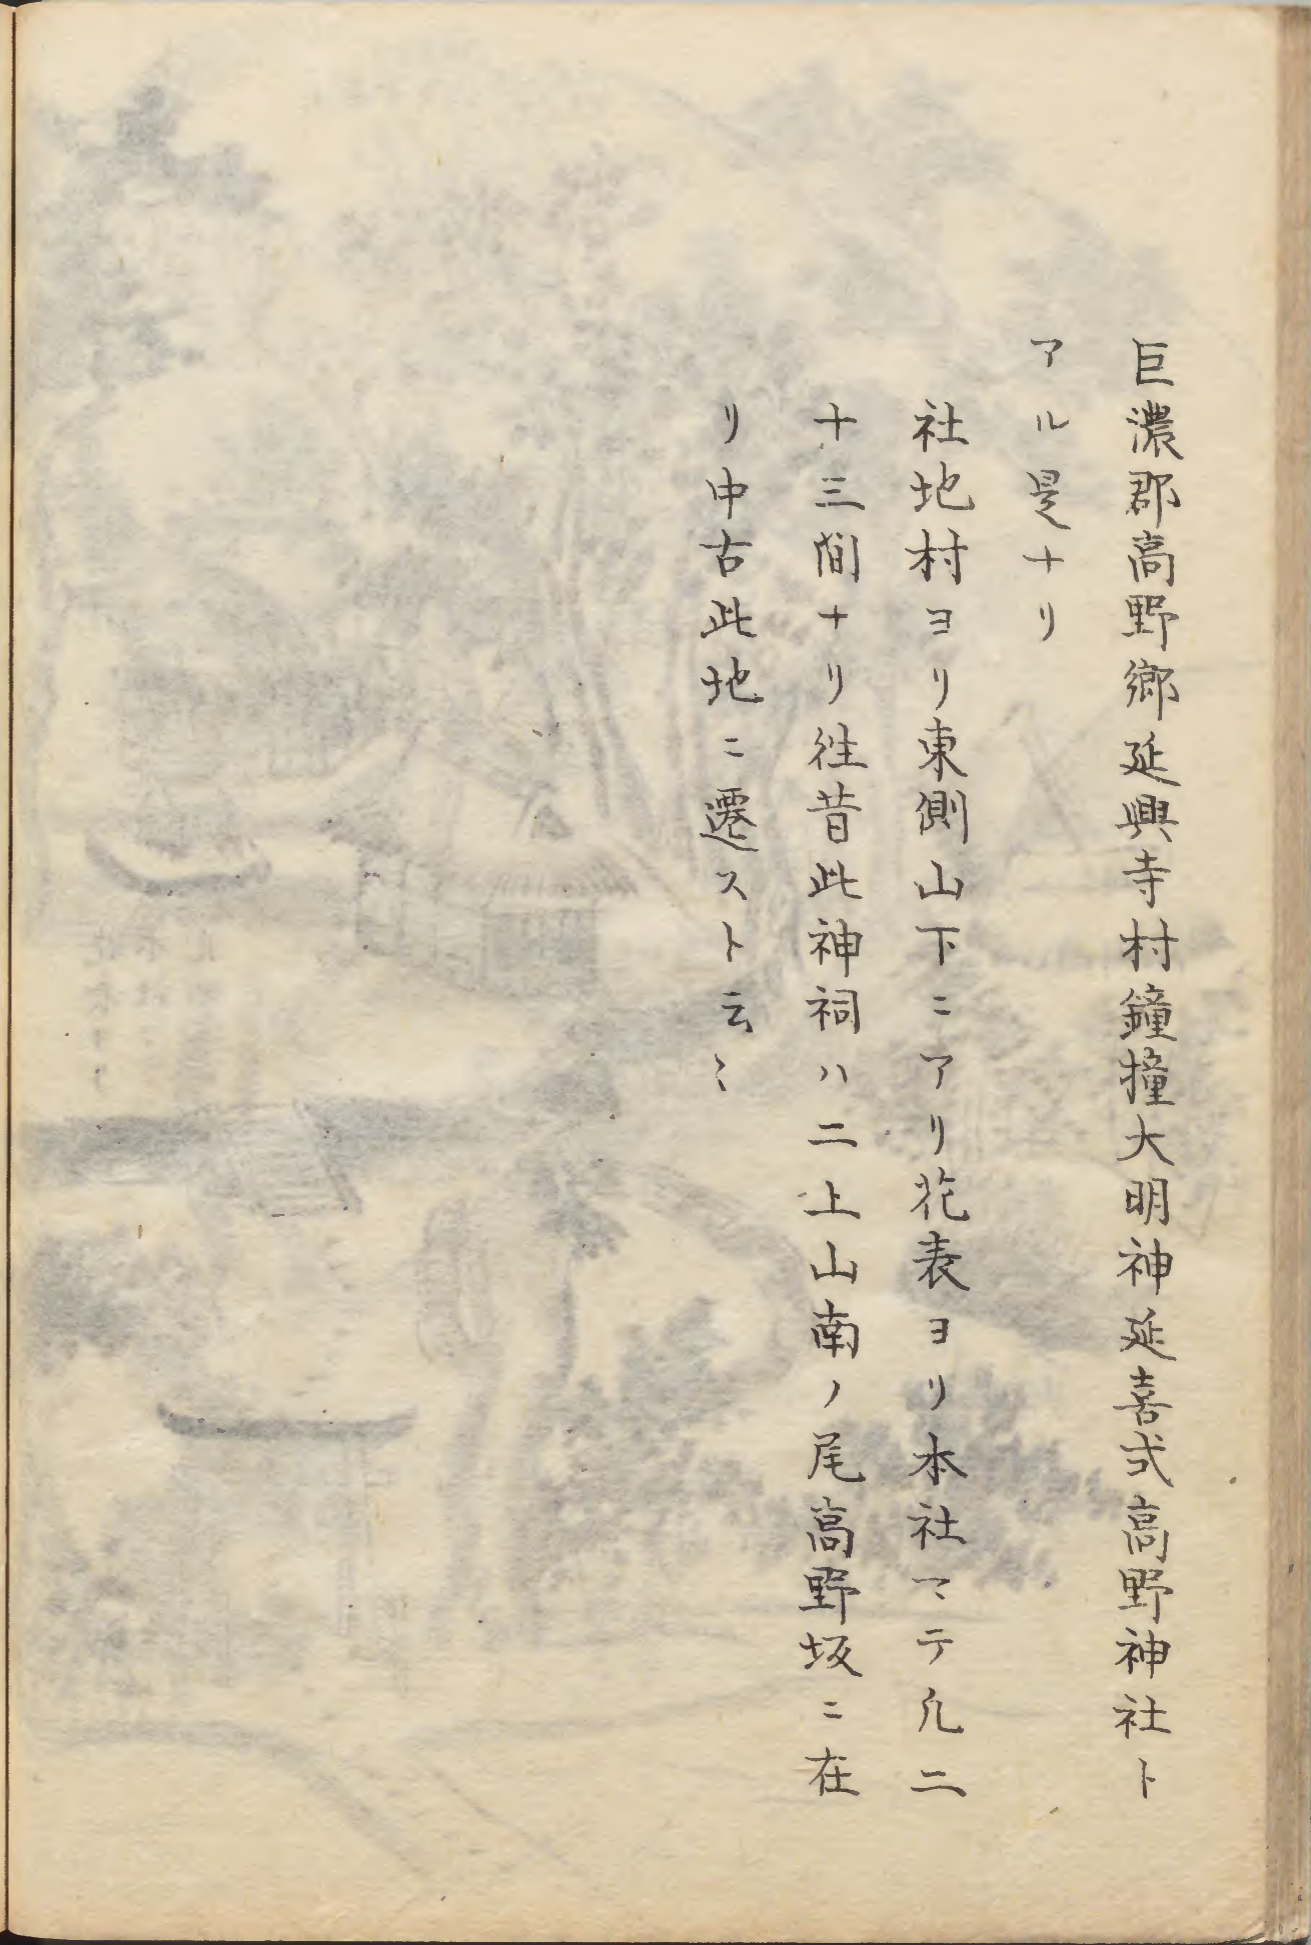 巨濃郡高野郷延興寺村鐘撞大明神延喜式高野神社ト
アル是ナリ
社地村ヨリ東側山下ニアリ花表ヨリ本社マテ凡二
十三間ナリ往昔此神祠ハ二上山南ノ尾高野坂ニ在
リ中古此地ニ遷スト云〻